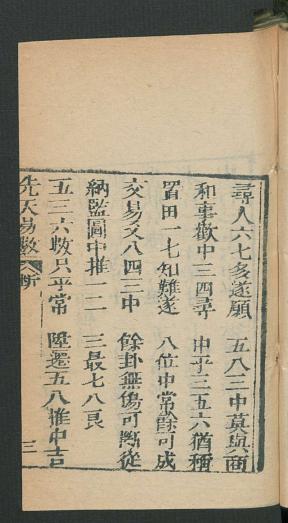 尋人六七多遂願 五八二中莫與商
和事歡中三四尋 中乎三五六猶種
置田一七知難遂 八位中常餘可成
交易又八四三中 餘卦無傷可斷從
納監圖中推一二 三最七八艮
五三六數只乎常 陞遷五八推中吉
先天易數 六斷 三